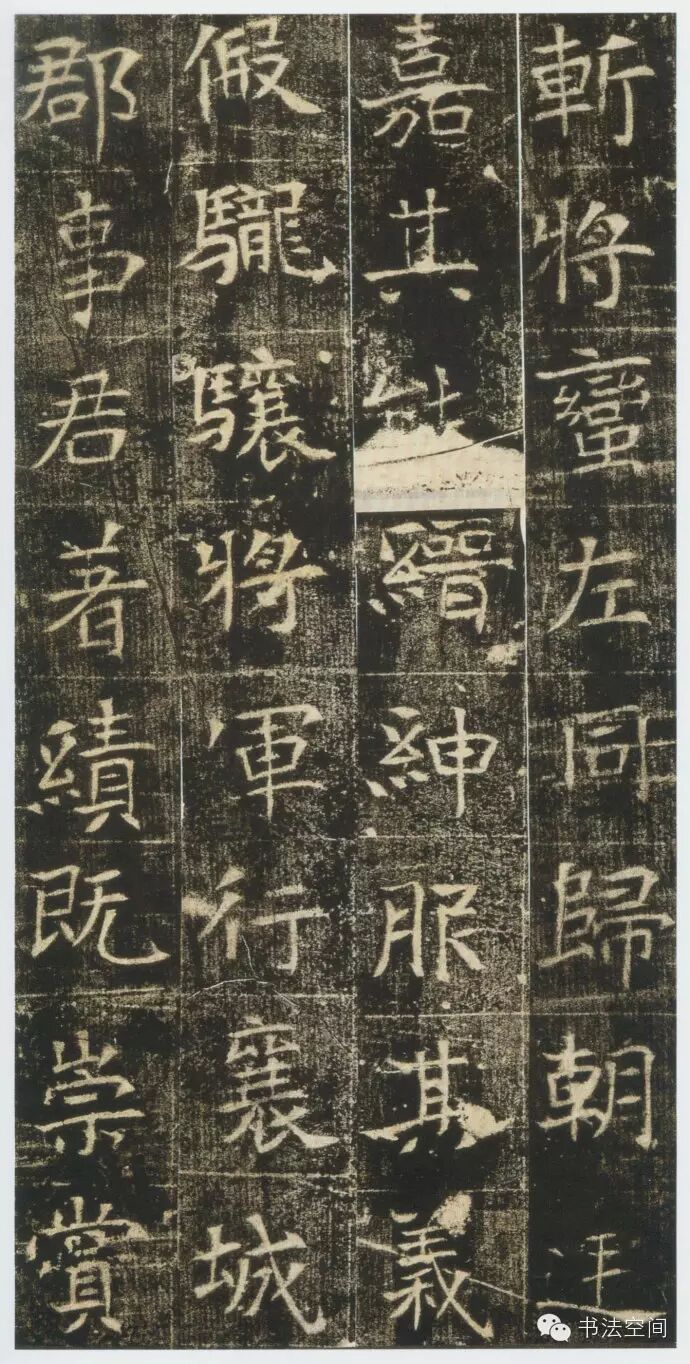 斬將蠻左同歸朝廷
嘉其縉紳服其義
假䮾驤將軍行襄城
郡事君著績既崇賞
书法空间